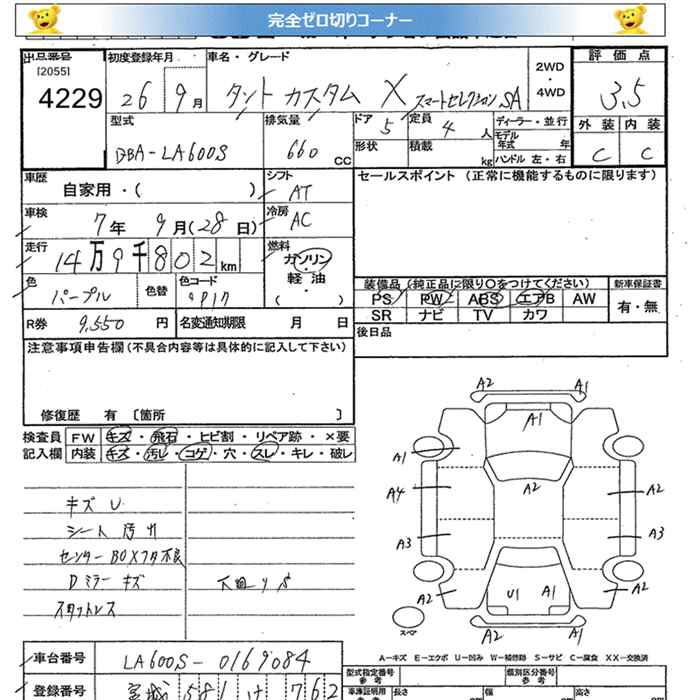 完全ゼロ切りコーナー
出品番号 初度登録年月 車名・グレード 評価点
[2055]
4229 26 9月 タント カスタム X スマートセレクション SA 2WD・4WD 3.5
型式 排気量 ドア 定員 ディーラー・並行 外装 内装
DBA-LA600S 660 CC 5 4人 モデル年式 年 C C
形状 積載 kg ハンドル 左・右
車歴 シフト セールスポイント (正常に機能するものに限ります)
自家用・( ) AT
車検 冷房
7年 9月(28日) AC
走行 燃料
14万9千802km ガソリン・軽油
色 色替 色コード ( ) 装備品(純正品に限り○をつけてください) 新車保証書
パープル PS PW ABS エアB AW 有・無
R券 9,550円 名変通知期限 月 日 SR ナビ TV カワ
注意事項申告欄(不具合内容等は具体的に記入して下さい) 後日品
修復歴 有 〔箇所 〕
検査員 FW キズ・飛石・ヒビ割・リペア跡・×要
記入欄 内装 キズ・汚レ・コゲ・穴・スレ・キレ・破レ
キズ U
シート 汚れ
センターBOXフタ不良
Dミラー キズ
スタットレス
下廻りS
A2 A1
A1
A1
A2
A4 A2
A3 A3
A2 U1 A1 A2
A2 A1
スペア
A-キズ E-エクボ U-凹み W-補修跡 S-サビ C-腐食 XX-交換済
車台番号 LA600S-0169084 型式指定番号 参考 類別区分番号 参考
登録番号 宮城 581 け 762 車庫証明用 長さ 幅 高さ